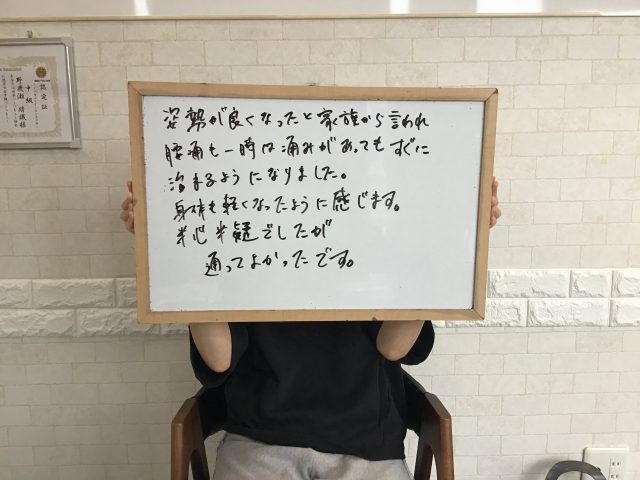 姿勢が良くなったと家族から言われ
腰痛も一時は痛みがあってもすぐに
治まるようになりました。
身体も軽くなったように感じます。
半心半疑でしたが
通ってよかったです。
認定証
中級